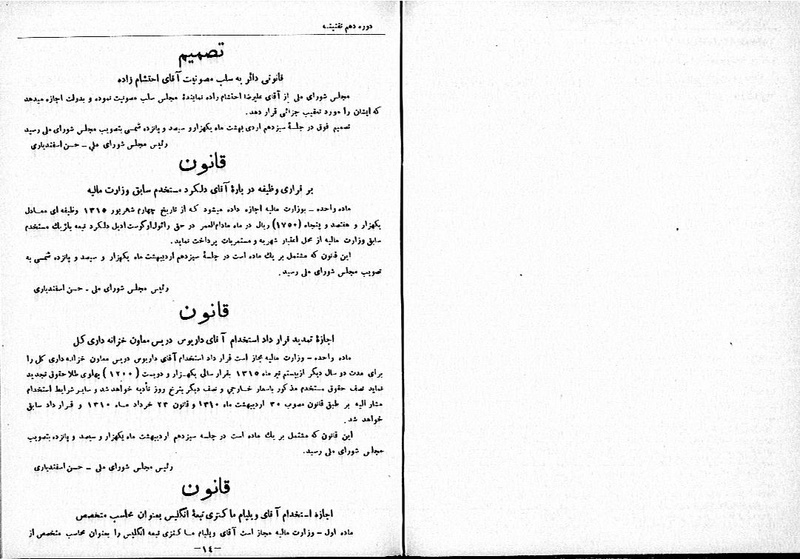 دوره دهم تقنینیه
تصمیم
قانونی دائر به سلب مصونیت آقای احتشام زاده
مجلس شورای ملی از آقای علیرضا احتشام زاده نمایندهٔ مجلس سلب مصونیت نموده و بدولت اجازه میدهد
که ایشان را مورد تعقیب جزائی قرار دهد.
تصمیم فوق در جلسهٔ سیزدهم اردی بهشت ماه یکهزار و سیصد و پانزده شمسی بتصویب مجلس شورای ملی رسید
رئیس مجلس شورای ملی ـ حسن اسفندیاری
قانون
بر قراری وظیفه در بارهٔ آقای دلکرد مستخدم سابق وزارت مالیه
ماده واحده ـ بوزارت مالیه اجازه داده میشود که از تاریخ چهارم شهریور ۱۳۱۵ وظیفه ای معادل
یکهزار و هفتصد و پنجاه (۱۷۵۰) ریال در ماه مادام‌العمر در حق رائول اوگوست ادیل دلکرد تبعه بلژیک مستخدم
سابق وزارت مالیه از محل اعتبار شهریه و مستمریات پرداخت نماید.
این قانون که مشتمل بر یك ماده است در جلسهٔ سیزدهم اردیبهشت ماه یکهزار و سیصد و پانزده شمسی به
تصویب مجلس شورای ملی رسید.
رئیس مجلس شورای ملی ـ حسن اسفندیاری
قانون
اجازهٔ تمدید قرار داد استخدام آقای داریوس دریس معاون خزانه داری کل
ماده واحده ـ وزارت مالیه مجاز است قرار داد استخدام آقای داریوس دریس معاون خزانه داری کل را
برای مدت دو سال دیگر از بیستم تیر ماه ۱۳۱۵ بقرار سالی یکهزار و دویست (۱۲۰۰) پهلوی طلا حقوق تجدید
نماید نصف حقوق مستخدم مذکور باسعار خارجی و نصف دیگر بنرخ روز تأدیه خواهد شد و سایر شرایط استخدام
مشار الیه بر طبق قانون مصوب ۳۰ اردیبهشت ماه ۱۳۱۰ و قانون ۲۳ خرداد ماه ۱۳۱۰ و قرار داد سابق
خواهد شد.
این قانون که مشتمل بر یك ماده است در جلسه سیزدهم اردیبهشت ماه یکهزار و سیصد و پانزده بتصویب
مجلس شورای ملی رسید.
رئیس مجلس شورای ملی ـ حسن اسفندیاری
قانون
اجازه استخدام آقای ویلیام ماکنزی تبعهٔ انگلیس بعنوان محاسب متخصص
ماده اول ـ وزارت مالیه مجاز است آقای ویلیام ماکنزی تبعه انگلیس را بعنوان محاسب متخصص از
ـ۱٤ـ